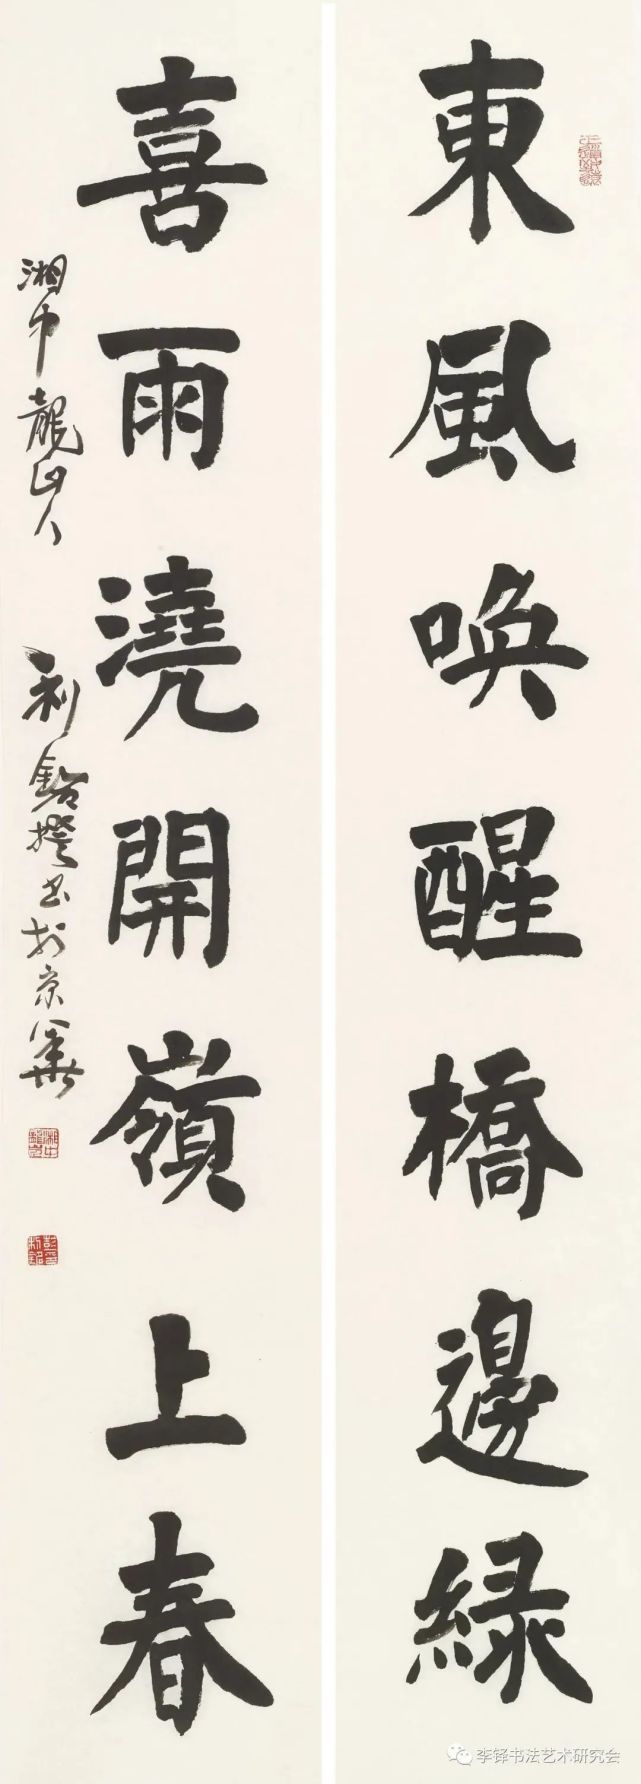 東風喚醒橋邊緑
喜雨澆開嶺上春
湘中龍山人
利銘撰書於京華
李铎书法艺术研究会